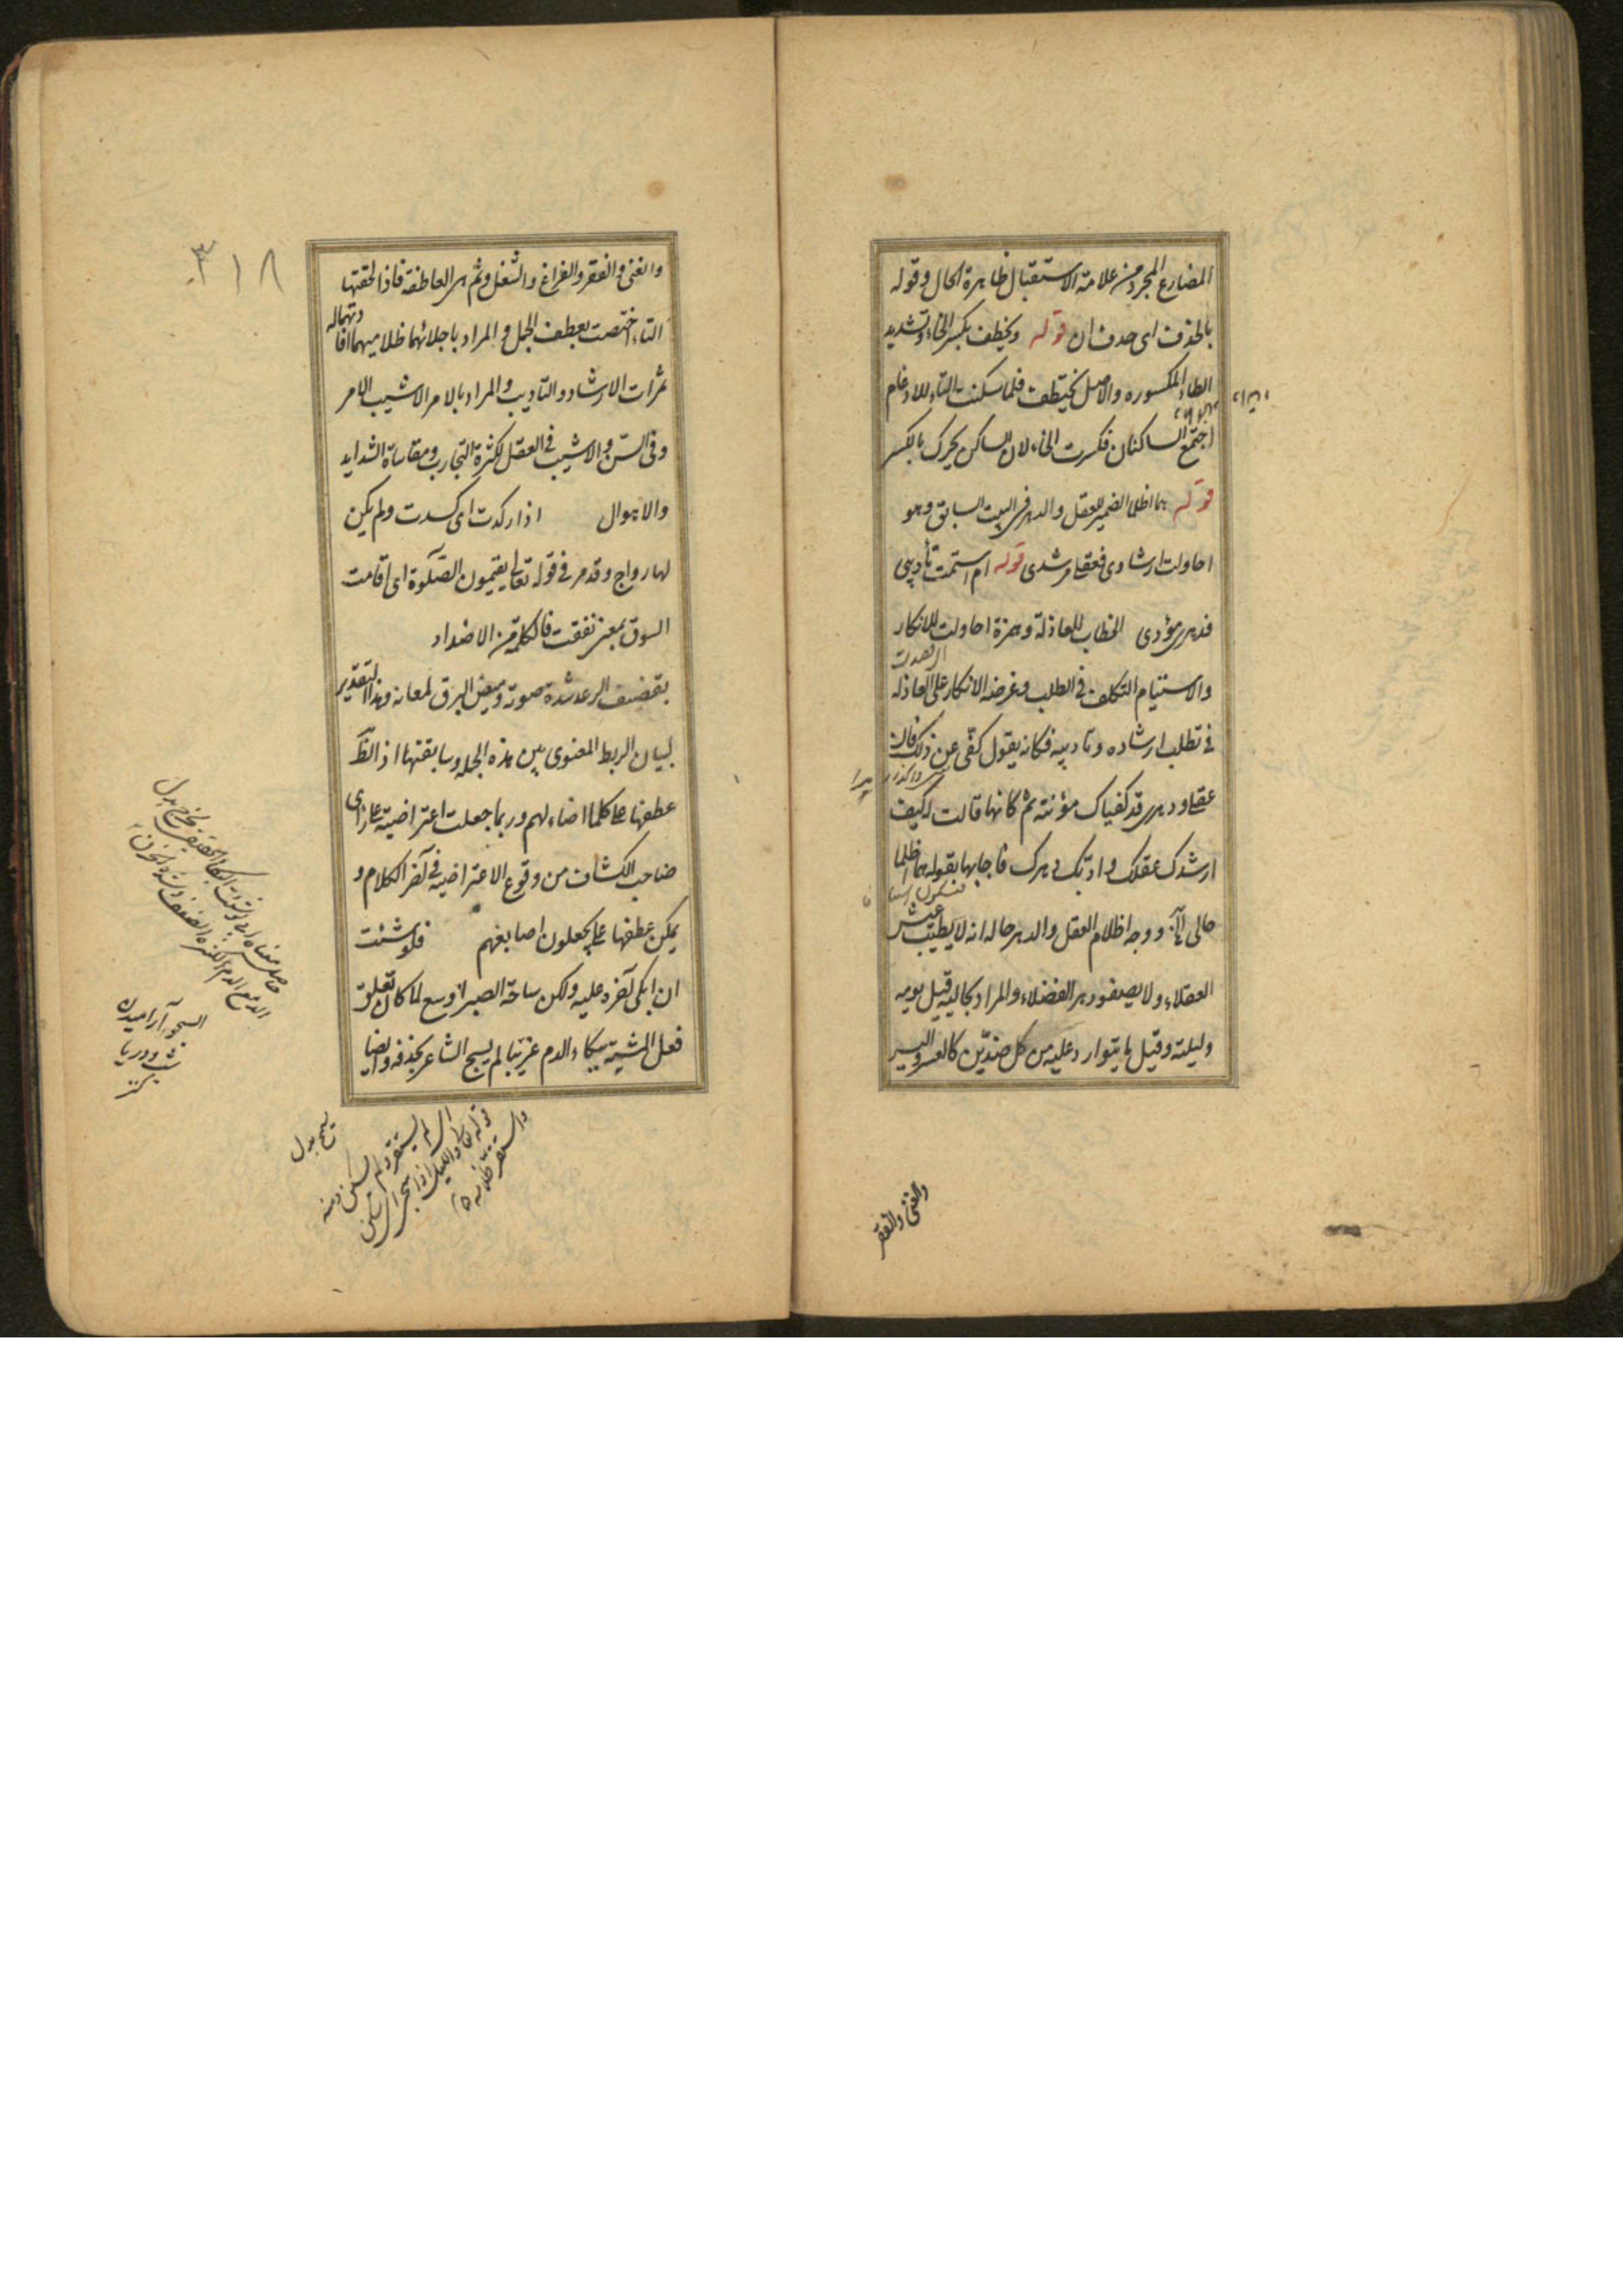 المضارع المجرد من علامة الاستقبال ظاهرة الحال وقوله
بالحذف اى حذف ان قوله ويخطف بكسر الخاء وتشديد
الطاء المكسوره والاصل يختطف فلما سكنت التاء للادغام
اجتمع الساكنان فكسرت الخاء لان الساكن يحرك بالكسر
قوله هما اظلما الضمير للعقل والدهر فى البيت السابق وهو
احاولت ارشادى فعقلى مرشدى قوله ام استمت تأديبى
فدهرى مؤدبى الخطاب للعاذلة وهمزة احاولت للانكار
والاستيام التكلف فى الطلب وغرضه الانكار على العاذله
فى تطلب ارشاده وتاديبه فكانه يقول كفى عن ذلك فان
عقلى ودهرى قد كفياك مؤنته ثم كانها قالت وكيف
ارشدك عقلك وادبك دهرك فاجابها بقوله هما اظلما
حالى الخ ووجه اظلام العقل والدهر حاله انه لا يطيب عيش
العقلاء ولا يصفو دهر الفضلاء والمراد بحاليه قيل يومه
وليلته وقيل ما يتوارد عليه من كل ضدين كالعسر واليسر
والغنى والفقر
٣١٨
والغنى والفقر والفراغ والشغل وثم هى العاطفة فاذا لحقتها
التاء اختصت بعطف الجمل والمراد باجلائهما ظلاميهما افا
ثمرات الارشاد والتاديب والمراد بالامر الاشيب الامر
وفى السن والاشيب فى العقل لكثرة التجارب ومقاساة الشدايد
والاهوال اذا ركدت اى كسدت ولم يكن
لها رواج وقد مر فى قوله تعالى يقيمون الصلوة اى اقامت
السوق بمعنى نفقت فالكلمة من الاضداد
بقصيف الرعد شدة صوته وميض البرق لمعانه وهذا التقدير
لبيان الربط المعنوى بين هذه الجمله وسابقتها اذ الظ
عطفها على كلما اضاء لهم وربما جعلت اعتراضية على راى
صاحب الكشاف من وقوع الاعتراضيه فى آخر الكلام و
يمكن عطفها على يجعلون اصابعهم فلو شئت
ان ابكى آخره عليه ولكن ساحة الصبر اوسع لما كان تعلق
فعل المشية ببكاء الدم غريبا لم يسمح الشاعر بحذفه وايضا
السجو آراميدن
شب ودريا
كنز